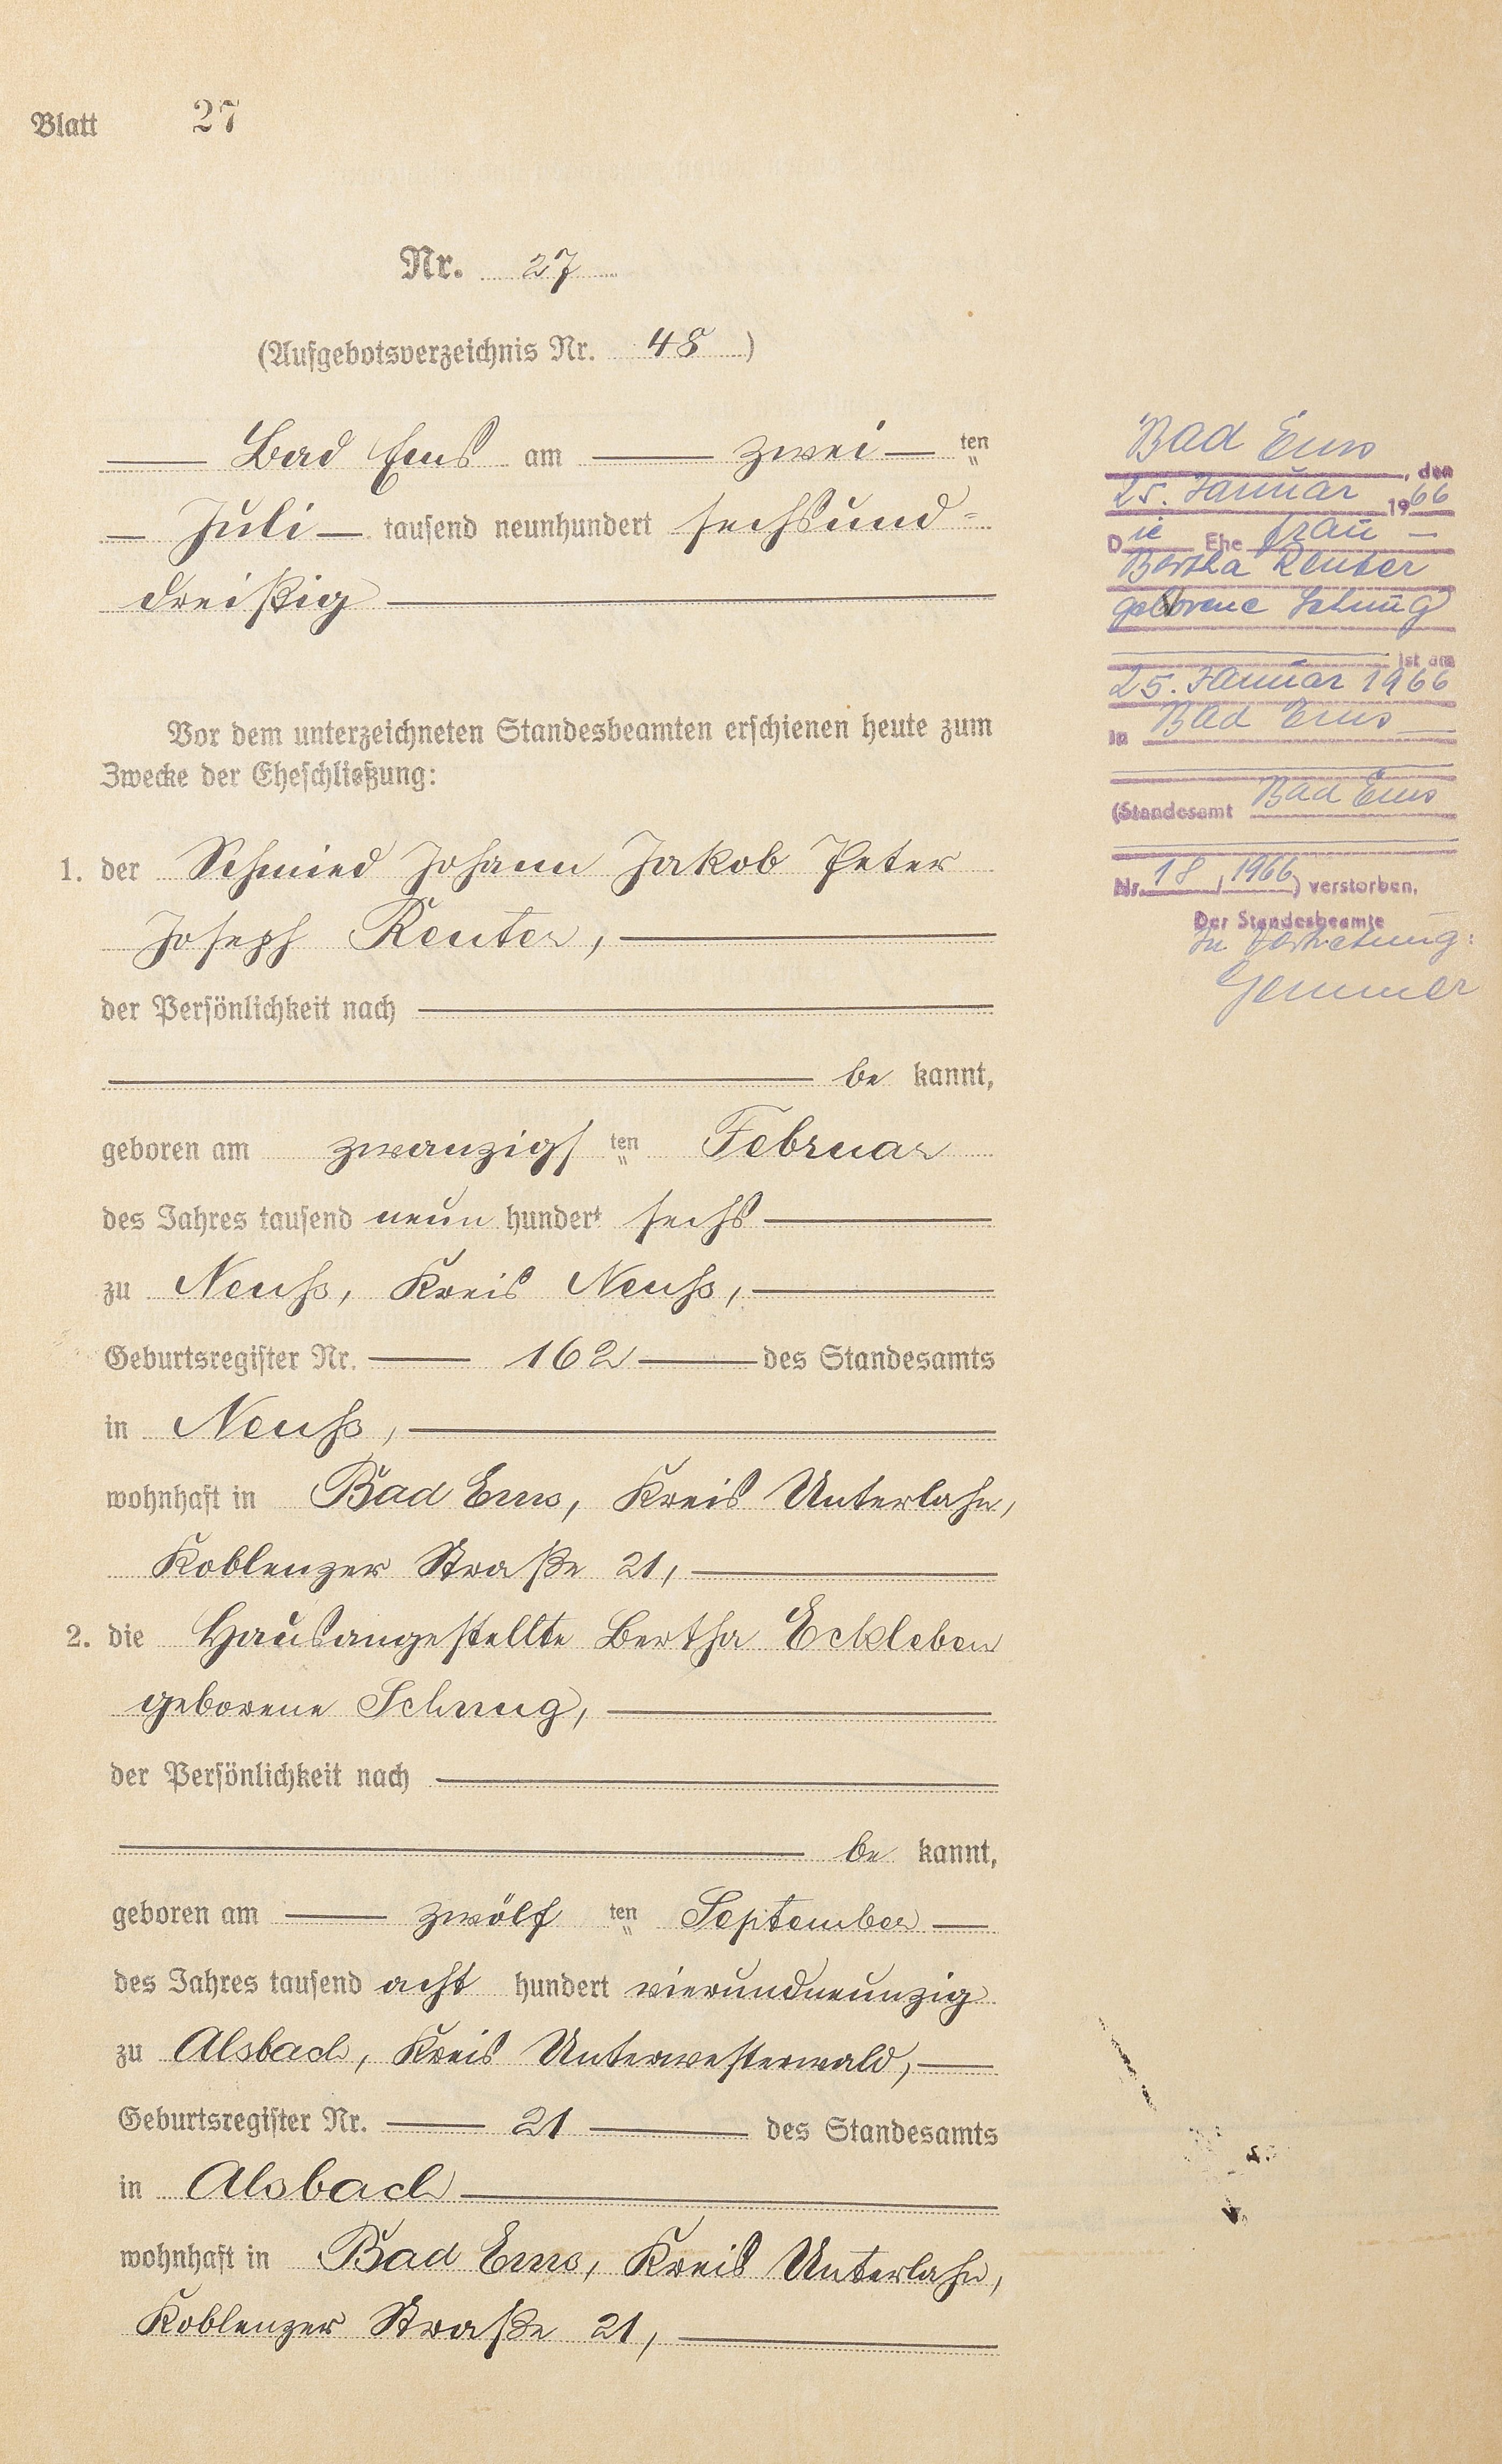 Blatt 27
Nr. 27
(Aufgebotsverzeichnis Nr. 48)
Bad Ems am zwei ten
Juli tausend neunhundert sechsund=
dreißig
Vor dem unterzeichneten Standesbeamten erschienen heute zum
Zwecke der Eheschließung:
1. der Schmied Johann Jakob Peter
Joseph Reuter,
der Persönlichkeit nach
be kannt,
geboren am zwanzigs ten Februar
des Jahres tausend neun hundert sechs
zu Neuß, Kreis Neuß,
Geburtsregister Nr. 162 des Standesamts
in Neuß,
wohnhaft in Bad Ems, Kreis Unterlahn,
Koblenzer Straße 21,
2. die Hausangestellte Bertha Eckleben
geborene Schnug,
der Persönlichkeit nach
be kannt,
geboren am zwölf ten September
des Jahres tausend acht hundert vierundneunzig
zu Alsbach, Kreis Unterwesterwald,
Geburtsregister Nr. 21 des Standesamts
in Alsbach
wohnhaft in Bad Ems, Kreis Unterlahn,
Koblenzer Straße 21,
Bad Ems, den
25. Januar 1966
Die Ehefrau
Bertha Reuter
geborene Schnug
ist am
25. Januar 1966
in Bad Ems
(Standesamt Bad Ems
Nr. 18 / 1966) verstorben.
Der Standesbeamte
In Vertretung:
Gemmer